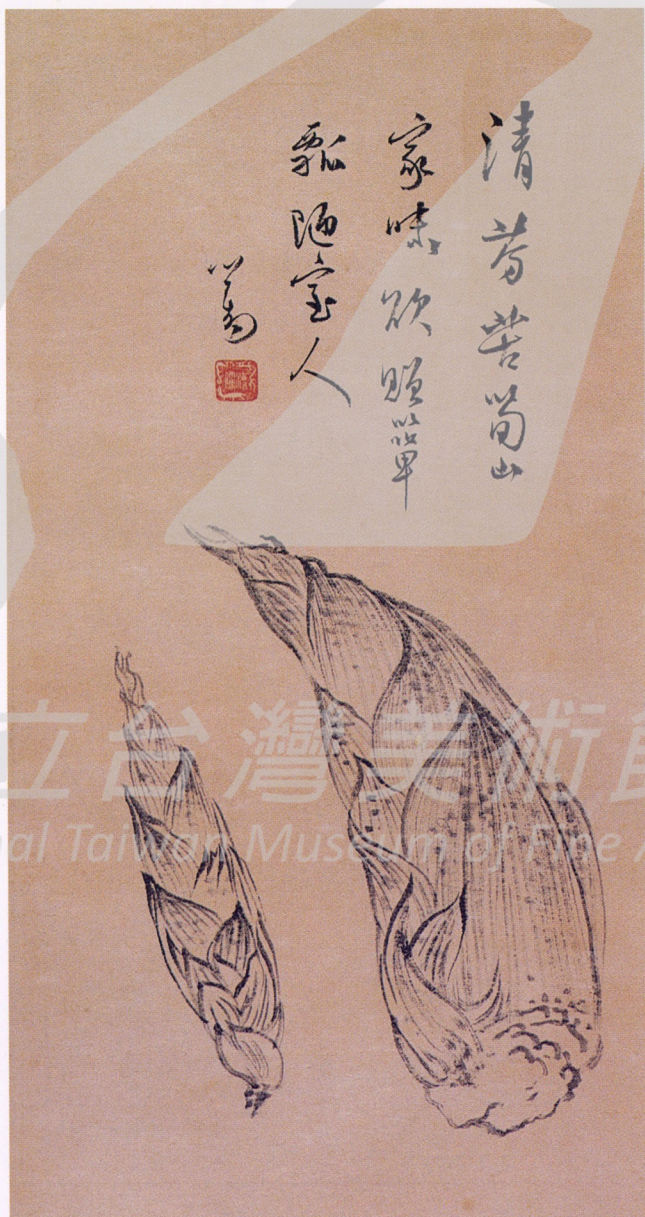 清芬苦筍山
家味欲贈簞
瓢陋室人
心畬
立台灣美術館
nal Taiwan Museum of Fine A